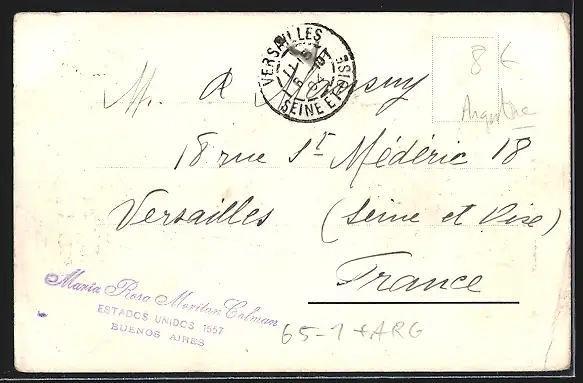 VERSAILLES
SEINE ET OISE
8 €
Argentine
M. A
18 rue St Médéric 18
Versailles (Seine et Oise)
France
Maria Rosa Moritan Colman
ESTADOS UNIDOS 1557
BUENOS AIRES
65-1 + ARG